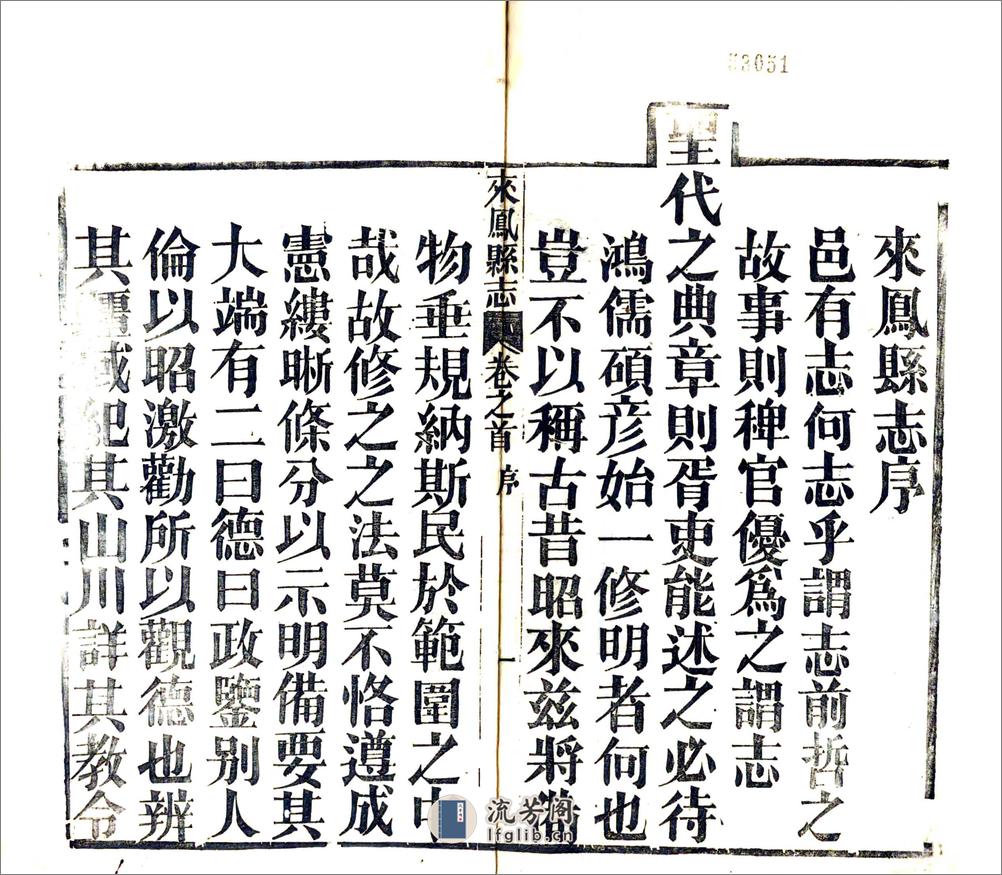 53051
來鳳縣志序
邑有志何志乎謂志前哲之
故事則稗官優爲之謂志
聖代之典章則胥吏能述之必待
鴻儒碩彦始一修明者何也
豈不以稱古昔昭來兹將
來鳳縣志 卷之首 序 一
物垂規納斯民於範圍之中
哉故修之之法莫不恪遵成
憲縷晰條分以示明備要其
大端有二曰德曰政鑒别人
倫以昭激勸所以觀德也辨
其疆域紀其山川詳其教令
流芳阁
lfglib.cn